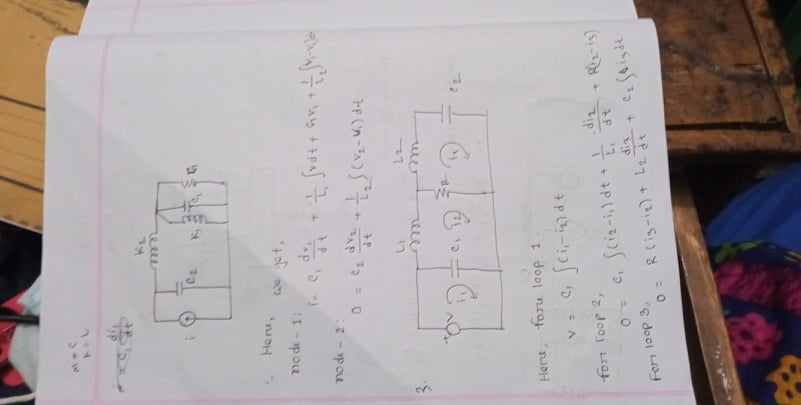 m = C
K = L
i = C₁ di₁/dt
K₂
i
C₂
K₁
C₁
G₁
∴ Here, we get,
node-1:
i = C₁ dv₁/dt + 1/L₁ ∫vdt + G₁v₁ + 1/L₂ ∫(v₁-v₂)dt
node-2:
0 = C₂ dv₂/dt + 1/L₂ ∫(v₂-v₁)dt
3.
L₁
L2
+
v
i₁
C₁
i₂
R
i₃
C₂
Here, fore loop 1
v = C₁ ∫(i₁-i₂)dt
for loop 2,
0 = C₁ ∫(i₂-i₁)dt + 1/L₁ di₂/dt + R(i₂-i₃)
For loop 3,
0 = R(i₃-i₂) + L₂ di₃/dt + C₂ ∫i₃dt